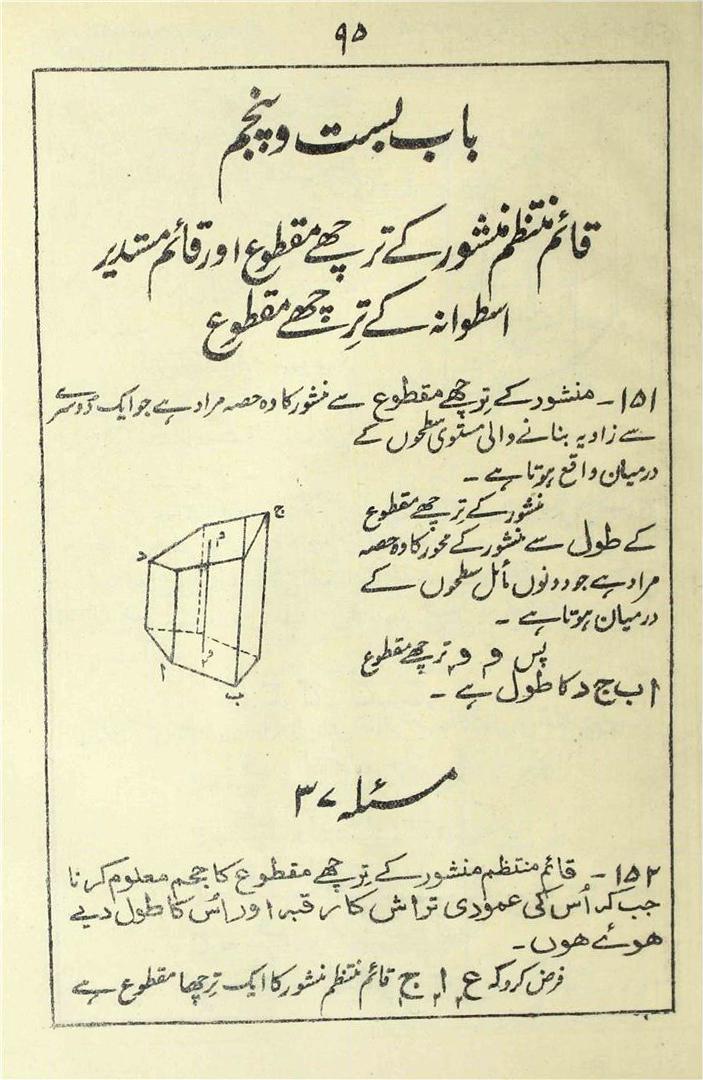 ۹۵
باب بست و پنجم
قائم منتظم منشور کے ترچھے مقطوع اور قائم مستدیر
اسطوانہ کے ترچھے مقطوع
۱۵۱- منشور کے ترچھے مقطوع سے منشور کا وہ حصہ مراد ہے جو ایک دوسرے
سے زاویہ بنانے والی مستوی سطحوں کے
درمیان واقع ہوتا ہے -
منشور کے ترچھے مقطوع
کے طول سے منشور کے محور کا وہ حصہ
مراد ہے جو دونوں مائل سطحوں کے
درمیان ہوتا ہے -
پس و و ترچھے مقطوع
ا ب ج د کا طول ہے -
ج
د
و
و
ا
ب
مسئلہ ۳۷
۱۵۲- قائم منتظم منشور کے ترچھے مقطوع کا حجم معلوم کرنا
جب کہ اُس کی عمودی تراش کا رقبہ اور اُس کا طول دیے
ہوئے ہوں -
فرض کرو کہ ع ا ج قائم منتظم منشور کا ایک ترچھا مقطوع ہے